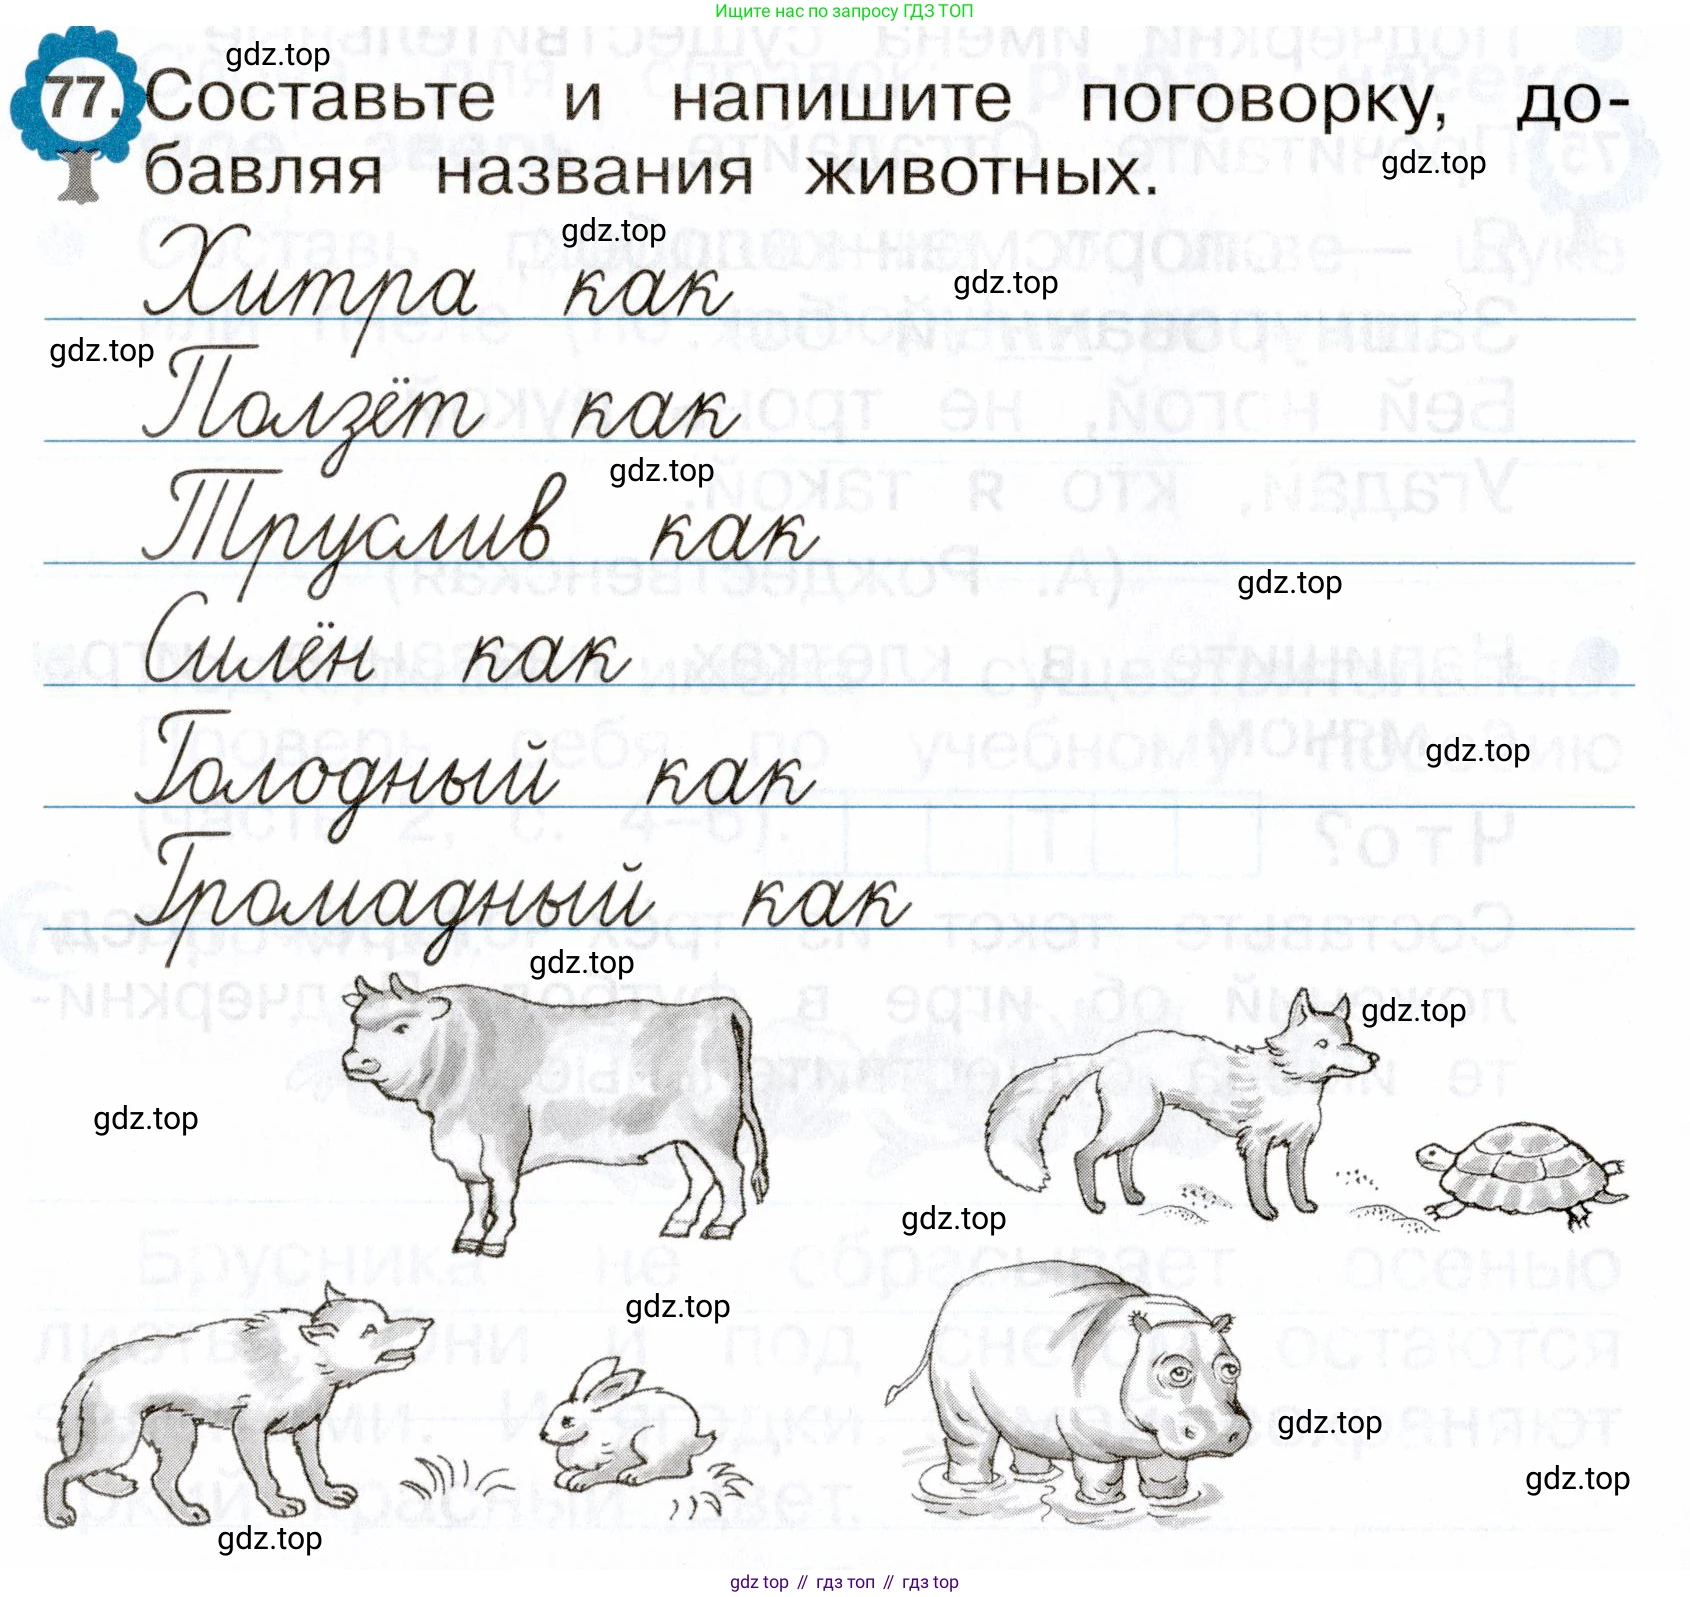 Ищите нас по запросу ГДЗ ТОП
gdz.top
77. Составьте и напишите поговорку, до-
бавляя названия животных.
gdz.top
gdz.top
Хитра как
gdz.top
gdz.top
Ползёт как
gdz.top
Труслив как
gdz.top
Силён как
Голодный как
gdz.top
Громадный как
gdz.top
gdz.top
gdz.top
gdz.top
gdz.top
gdz.top
gdz.top
gdz.top
gdz top // гдз топ // гдз top